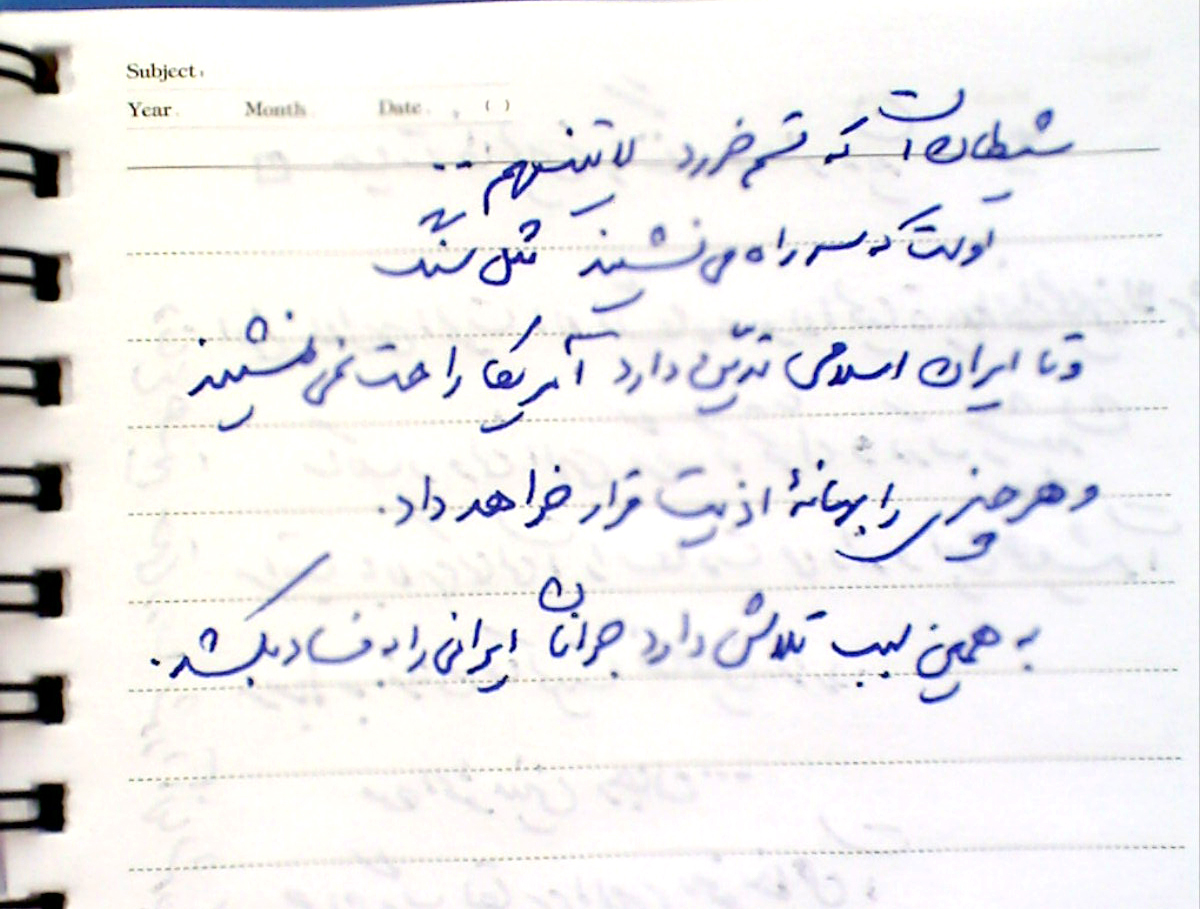 Subject:
Year. Month. Date. , ( )
شیطان است که قسم خورد لاتینهم...
اوست که سر راه می نشیند مثل سگ
و تا ایران اسلامی تدین دارد آمریکا راحت نمی نشیند
و هر چیزی را بهانهٔ اذیت قرار خواهد داد.
به همین سبب تلاش دارد جوانان ایرانی را به فساد بکشد.